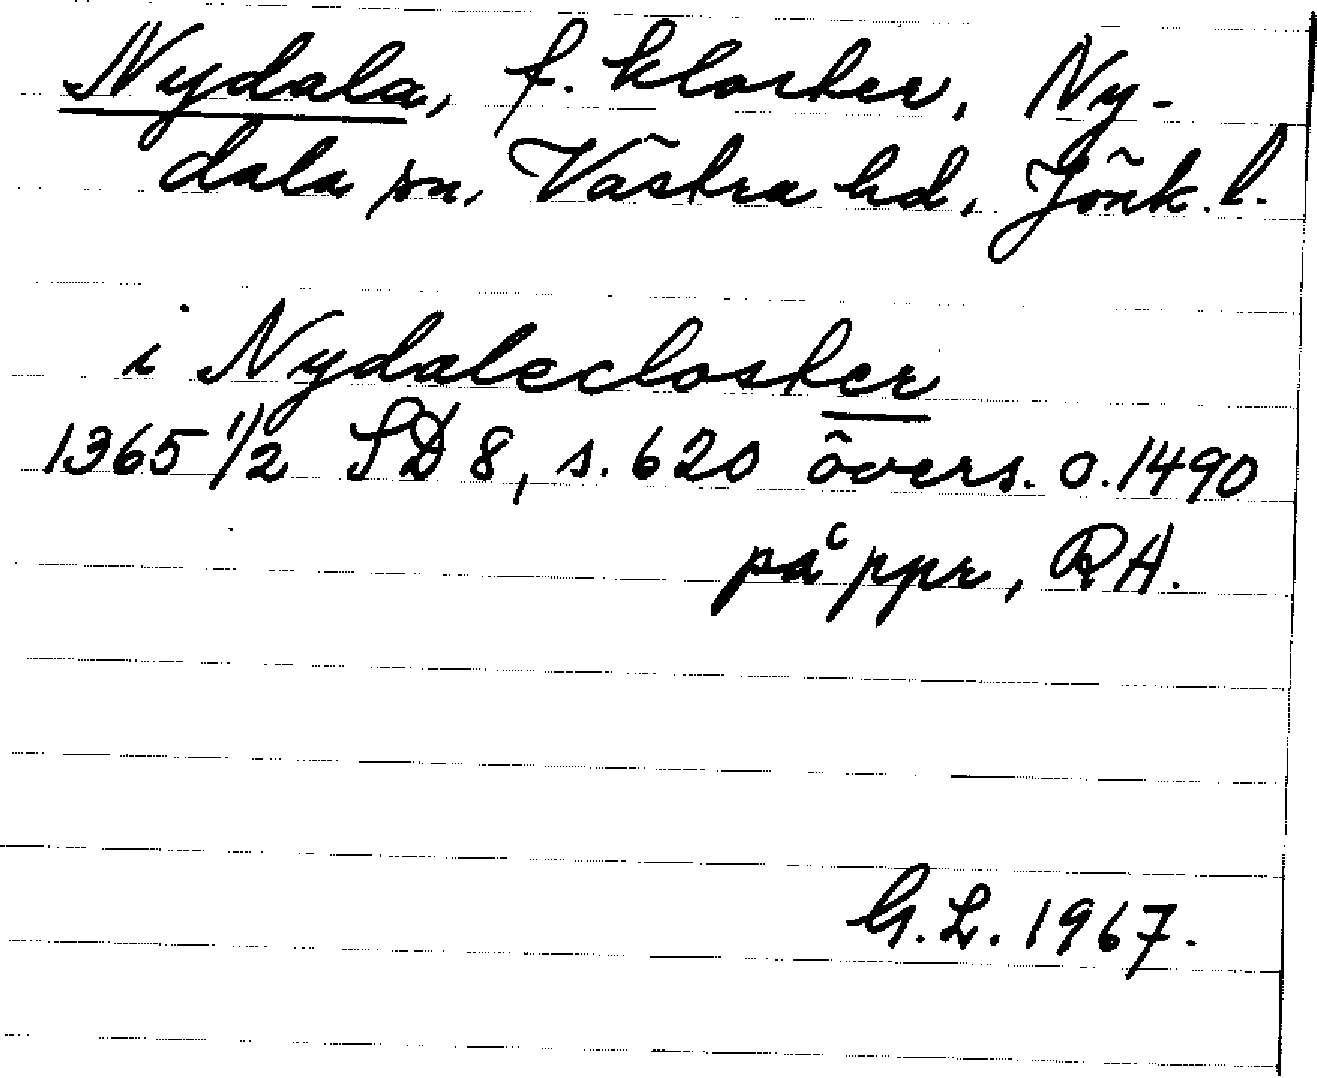 Nydala, f. kloster, Ny-
dala sn, Västra hd, Jönk. l.
i Nydalecloster
1365 1/2 SD 8, s. 620 övers. o. 1490
på ppr, RA.
G. L. 1967.